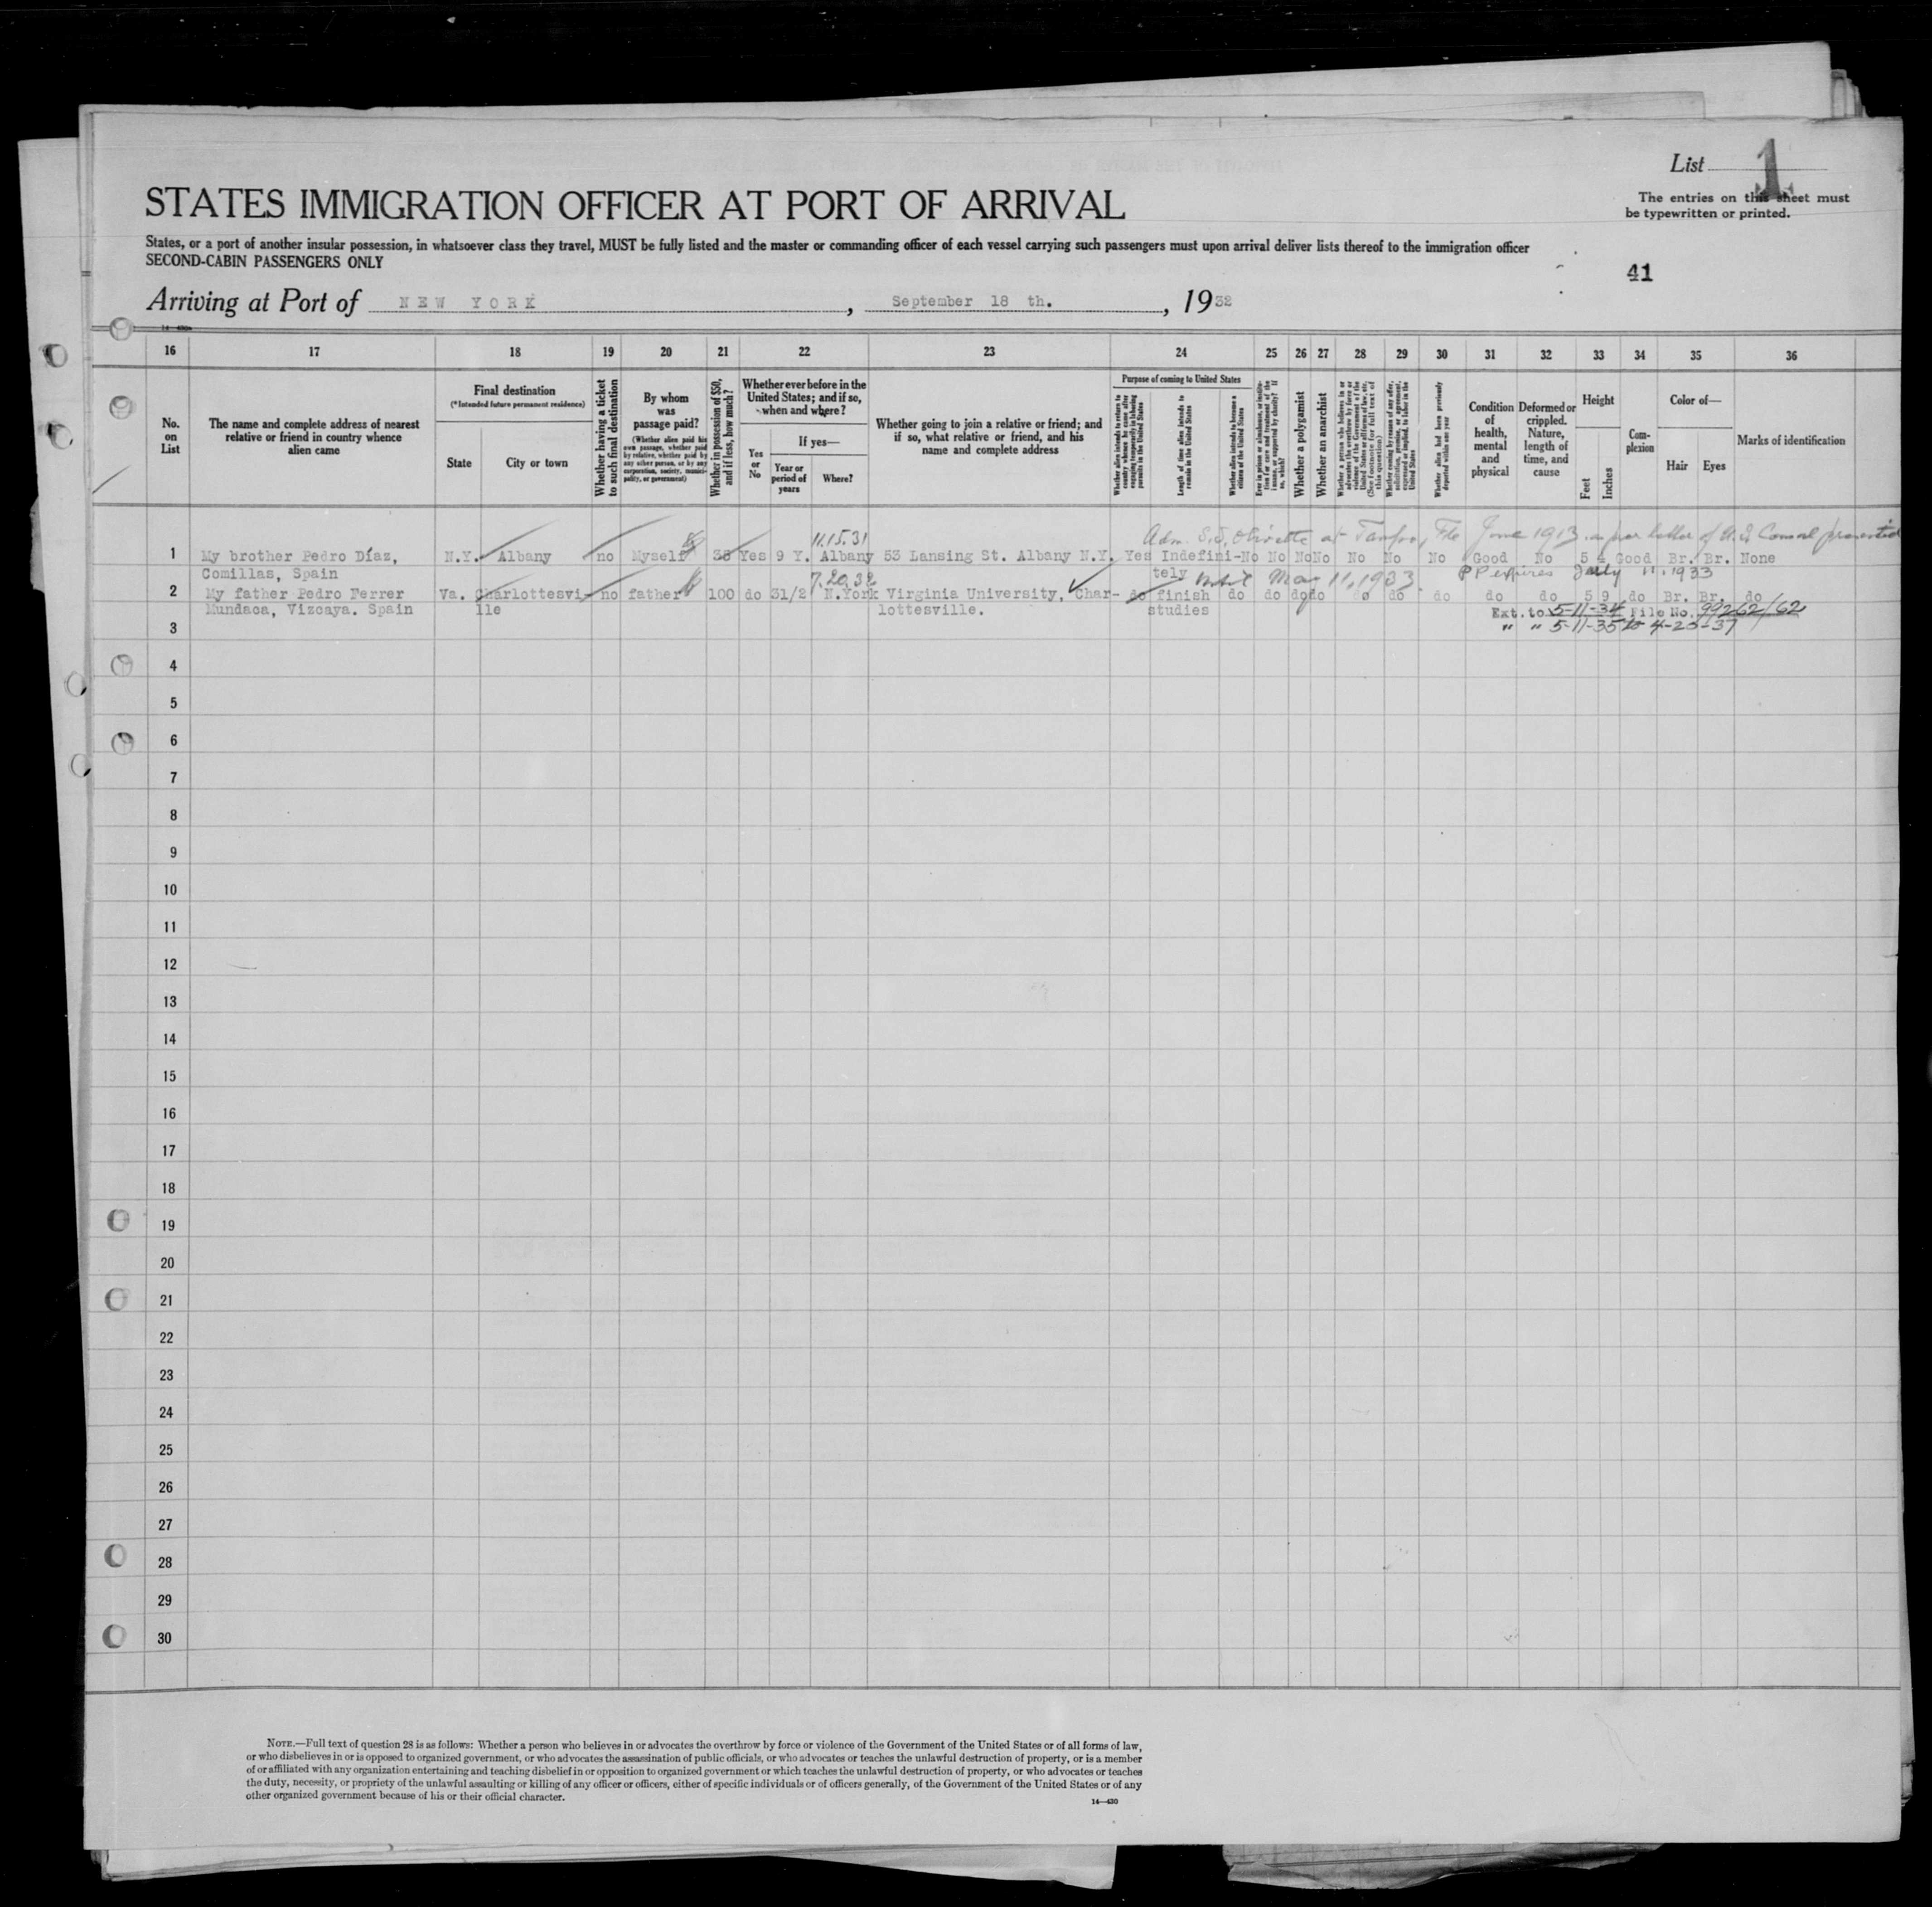 List 1
The entries on this sheet must
be typewritten or printed.
STATES IMMIGRATION OFFICER AT PORT OF ARRIVAL
States, or a port of another insular possession, in whatsoever class they travel, MUST be fully listed and the master or commanding officer of each vessel carrying such passengers must upon arrival deliver lists thereof to the immigration officer
SECOND-CABIN PASSENGERS ONLY
41
Arriving at Port of NEW YORK, September 18 th., 1932
16 17 18 19 20 21 22 23 24 25 26 27 28 29 30 31 32 33 34 35 36
No. on List
The name and complete address of nearest relative or friend in country whence alien came
Final destination
(*Intended future permanent residence)
State
City or town
Whether having a ticket to such final destination
By whom was passage paid?
(Whether alien paid his own passage, whether paid by relative, whether paid by any other person, or by any corporation, society, municipality, or government)
Whether in possession of $50, and if less, how much?
Whether ever before in the United States; and if so, when and where?
Yes or No
If yes—
Year or period of years
Where?
Whether going to join a relative or friend; and if so, what relative or friend, and his name and complete address
Purpose of coming to United States
Whether alien intends to return to country whence he came after engaging temporarily in laboring pursuits in the United States
Length of time alien intends to remain in the United States
Whether alien intends to become a citizen of the United States
Ever in prison or almshouse, or institution for care and treatment of the insane, or supported by charity? If so, which?
Whether a polygamist
Whether an anarchist
Whether a person who believes in or advocates the overthrow by force or violence of the Government of the United States or all forms of law, etc. (See footnote for full text of this question)
Whether coming by reason of any offer, solicitation, promise, or agreement, expressed or implied, to labor in the United States
Whether alien had been previously deported within one year
Condition of health, mental and physical
Deformed or crippled. Nature, length of time, and cause
Height
Feet
Inches
Complexion
Color of—
Hair
Eyes
Marks of identification
11.15.31 Adm. S.S. Olivette at Tampa, Fla June 1913 as per letter of A.S Consul presented
1 My brother Pedro Díaz, N.Y. Albany no Myself 38 Yes 9 Y. Albany 53 Lansing St. Albany N.Y. Yes Indefini- No No No No No No No Good No 5 4 Good Br. Br. None
Comillas, Spain 7.20.32 tely until May 11, 1933. PP expires July 11. 1933
2 My father Pedro Ferrer Va. Charlottesvi- no father 100 do 31/2 N.York Virginia University, Char- do finish do do do do do do do do do 5 9 do Br. Br. do
Mundaca, Vizcaya. Spain lle lottesville. studies Ext. to 5-11-34 File No. 99262/62
3 " " 5-11-35 to 4-23-37
4
5
6
7
8
9
10
11
12
13
14
15
16
17
18
19
20
21
22
23
24
25
26
27
28
29
30
NOTE.—Full text of question 28 is as follows: Whether a person who believes in or advocates the overthrow by force or violence of the Government of the United States or of all forms of law,
or who disbelieves in or is opposed to organized government, or who advocates the assassination of public officials, or who advocates or teaches the unlawful destruction of property, or is a member
of or affiliated with any organization entertaining and teaching disbelief in or opposition to organized government or which teaches the unlawful destruction of property, or who advocates or teaches
the duty, necessity, or propriety of the unlawful assaulting or killing of any officer or officers, either of specific individuals or of officers generally, of the Government of the United States or of any
other organized government because of his or their official character.
14—430